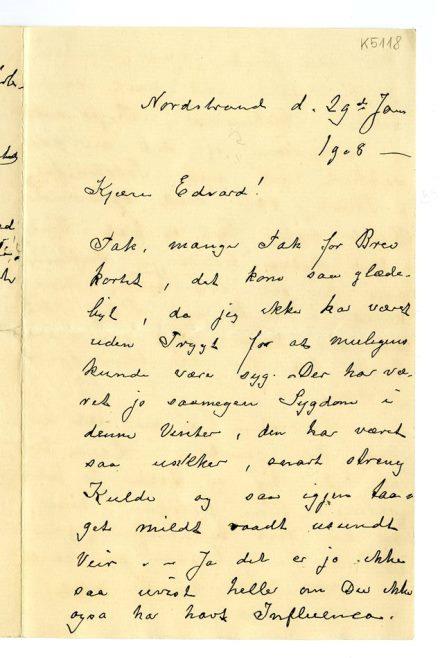 K5118
Nordstrand d. 29de Jan
1908 —
Kjære Edvard!
Tak, mange Tak for Brev
kortet, det kom saa glæde-
ligt, da jeg ikke har været
uden Frygt for at muligens
kunde være syg. – Der har væ-
ret jo saamegen Sygdom i
denne Vinter, den har været
saa usikker, snart streng
Kulde og saa igjen taa-
get mildt vaadt usundt
Veir. – – Ja det er jo ikke
saa uvist heller om Du ikke
ogsaa har havt Influenca.